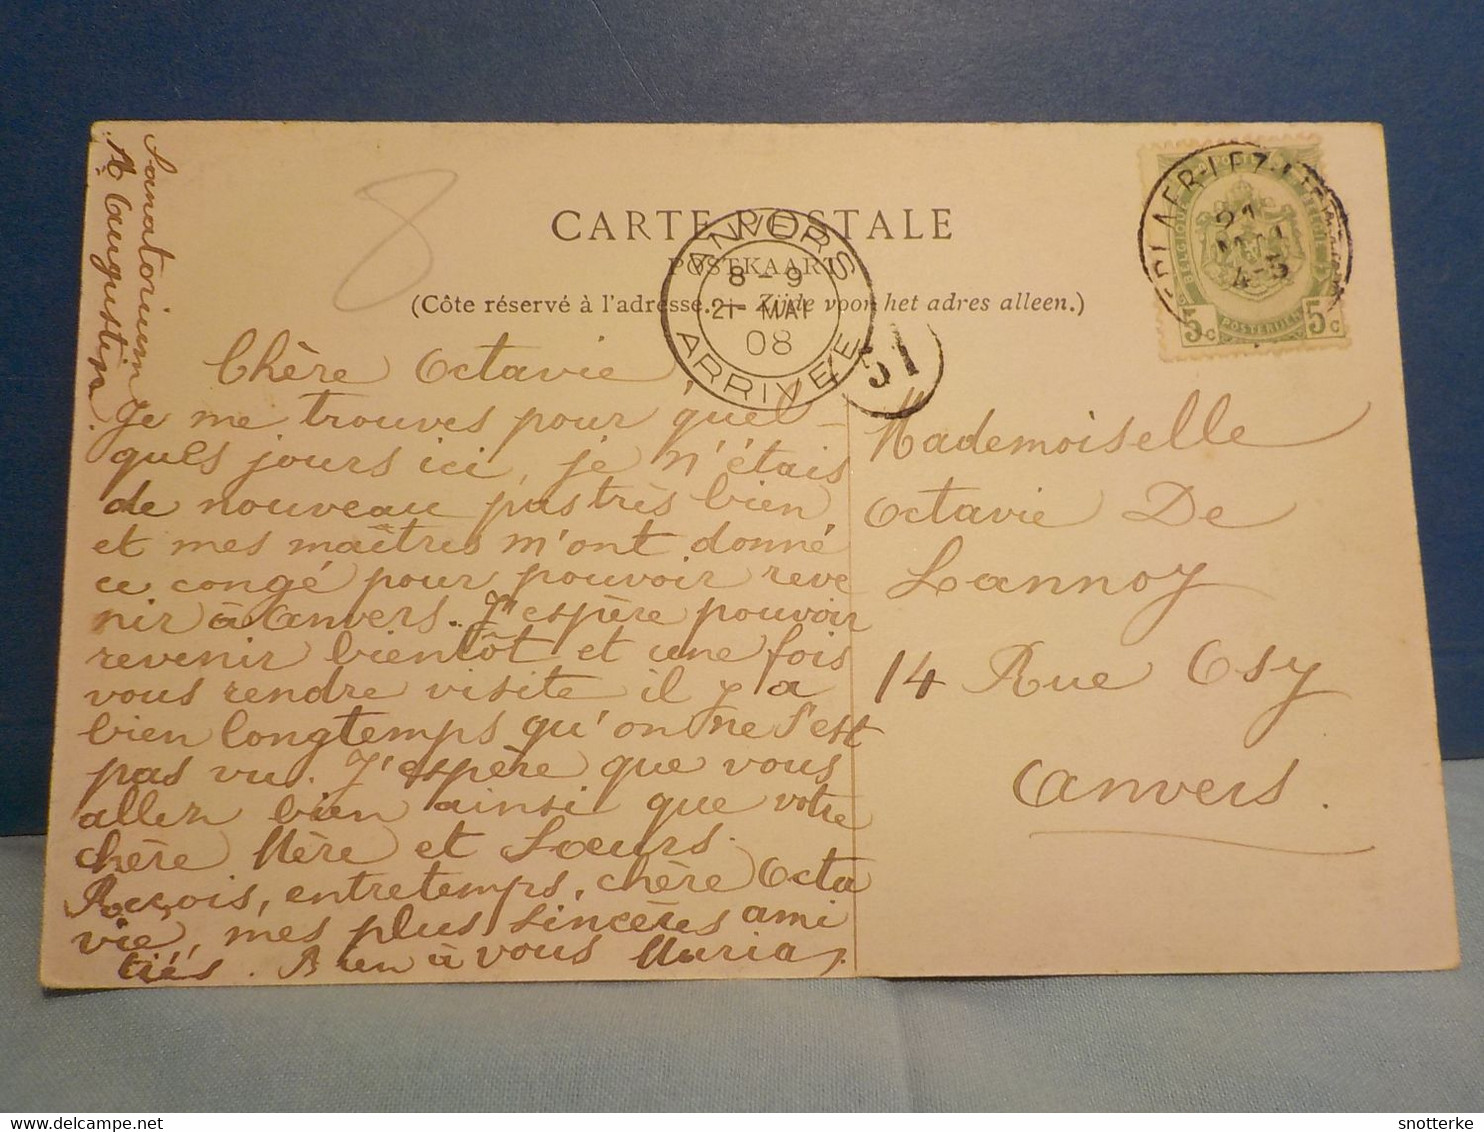 Sanatorium
St Augustin.
8
CARTE POSTALE
POSTKAART
(Côte réservé à l'adresse. — Zijde voor het adres alleen.)
ANVERS
8 - 9
21 MAI
08
ARRIVÉE
51
21
MAI
4-5
BELGIQUE
POSTERIJEN
5c 5c
Chère Octavie,
Je me trouves pour quel-
ques jours ici, je n'étais
de nouveau pas très bien
et mes maîtres m'ont donné
ce congé pour pouvoir reve
nir à Anvers. J'espère pouvoir
revenir bientôt et une fois
vous rendre visite il y a
bien longtemps qu'on ne s'est
pas vu. J'espère que vous
allez bien ainsi que votre
chère Mère et Sœurs.
Reçois, entretemps, chère Octa
vie, mes plus sincères ami
tiés. Bien à vous Maria.
Mademoiselle
Octavie De
Lannoy
14 Rue Osy
Anvers.
snotterke